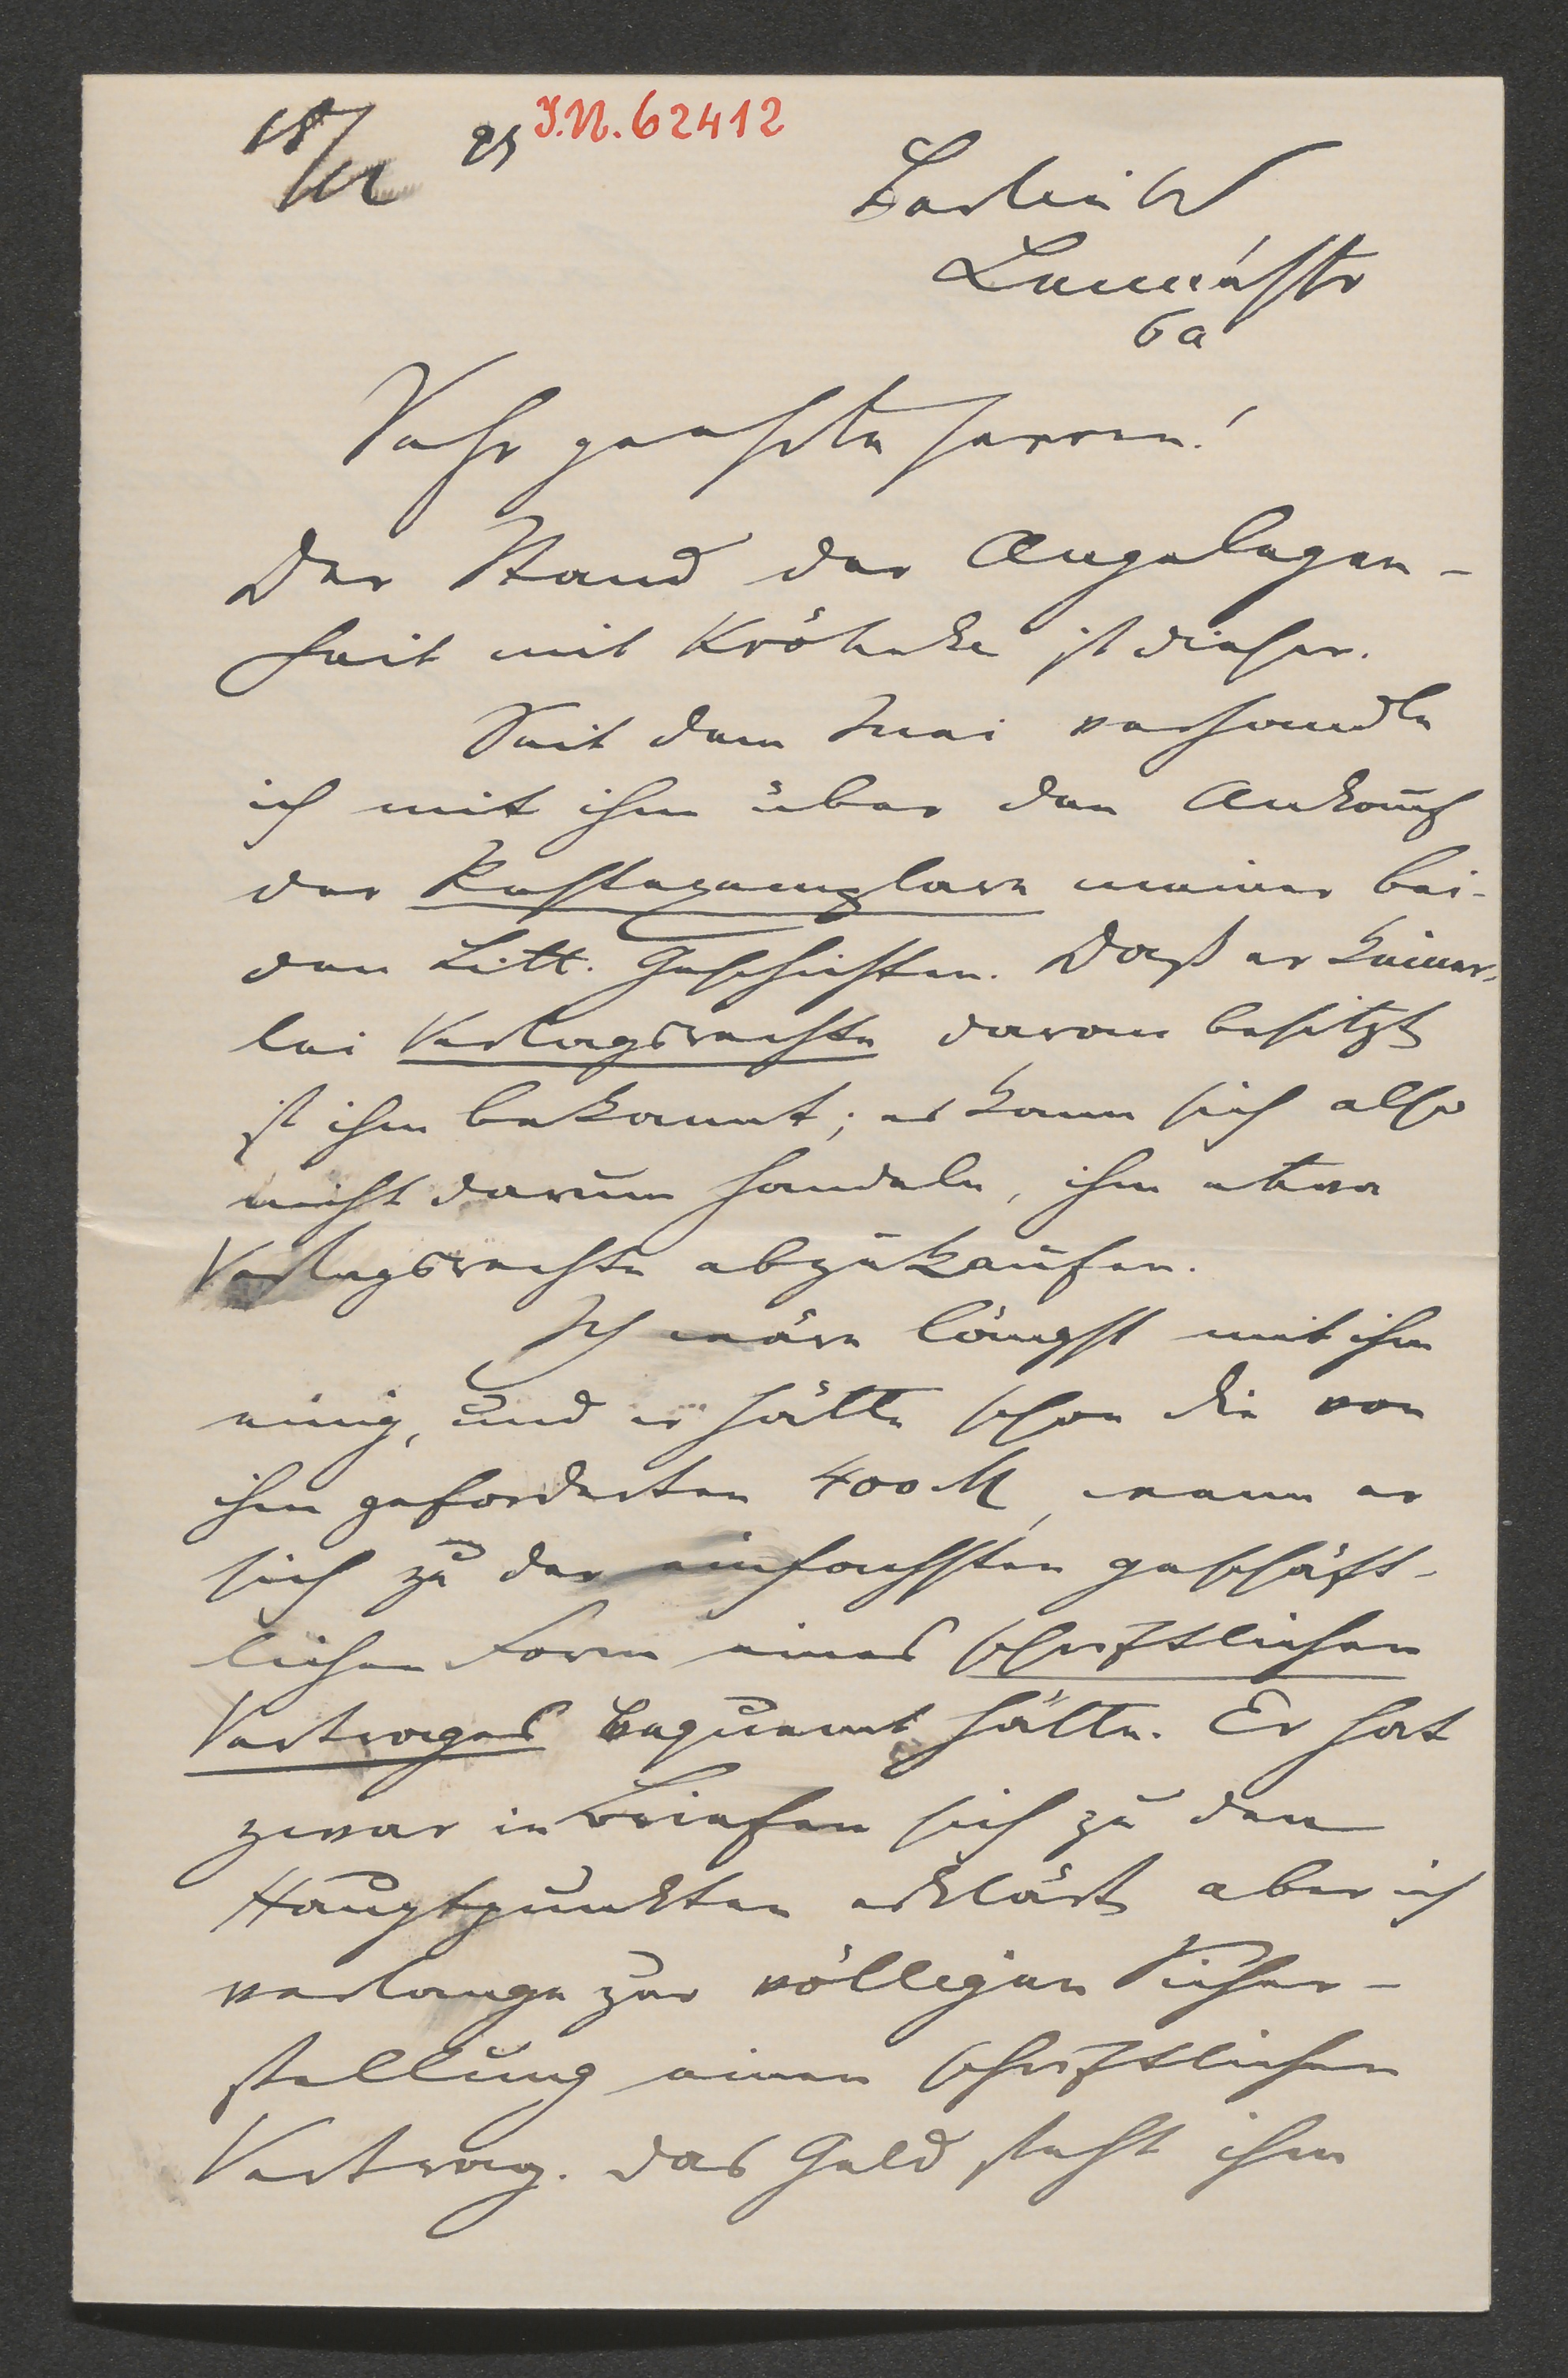 18/11 95 I.N. 62412
Berlin W
Lennéstr
6a
Sehr geehrte Herren!
Der Stand der Angelegen-
heit mit Kröhnke ist dieser.
Seit dem Mai verhandle
ich mit ihm über den Ankauf
der Restexemplare meiner bei-
den Litt. Geschichten. Daß er keiner-
lei Verlagsrechte daran besitzt
ist ihm bekannt; es kann sich also
nicht darum handeln, ihm etwa
Verlagsrechte abzukaufen.
Ich wäre längst mit ihm
einig, und er hätte schon die von
ihm geforderten 400 M, wenn er
sich zu der einfachsten geschäft-
lichen Form eines schriftlichen
Vertrages bequemt hätte. Er hat
zwar in Briefen sich zu den
Hauptpunkten erklärt, aber ich
verlange zur völligen Sicher-
stellung einen schriftlichen
Vertrag. Das Geld steht ihm